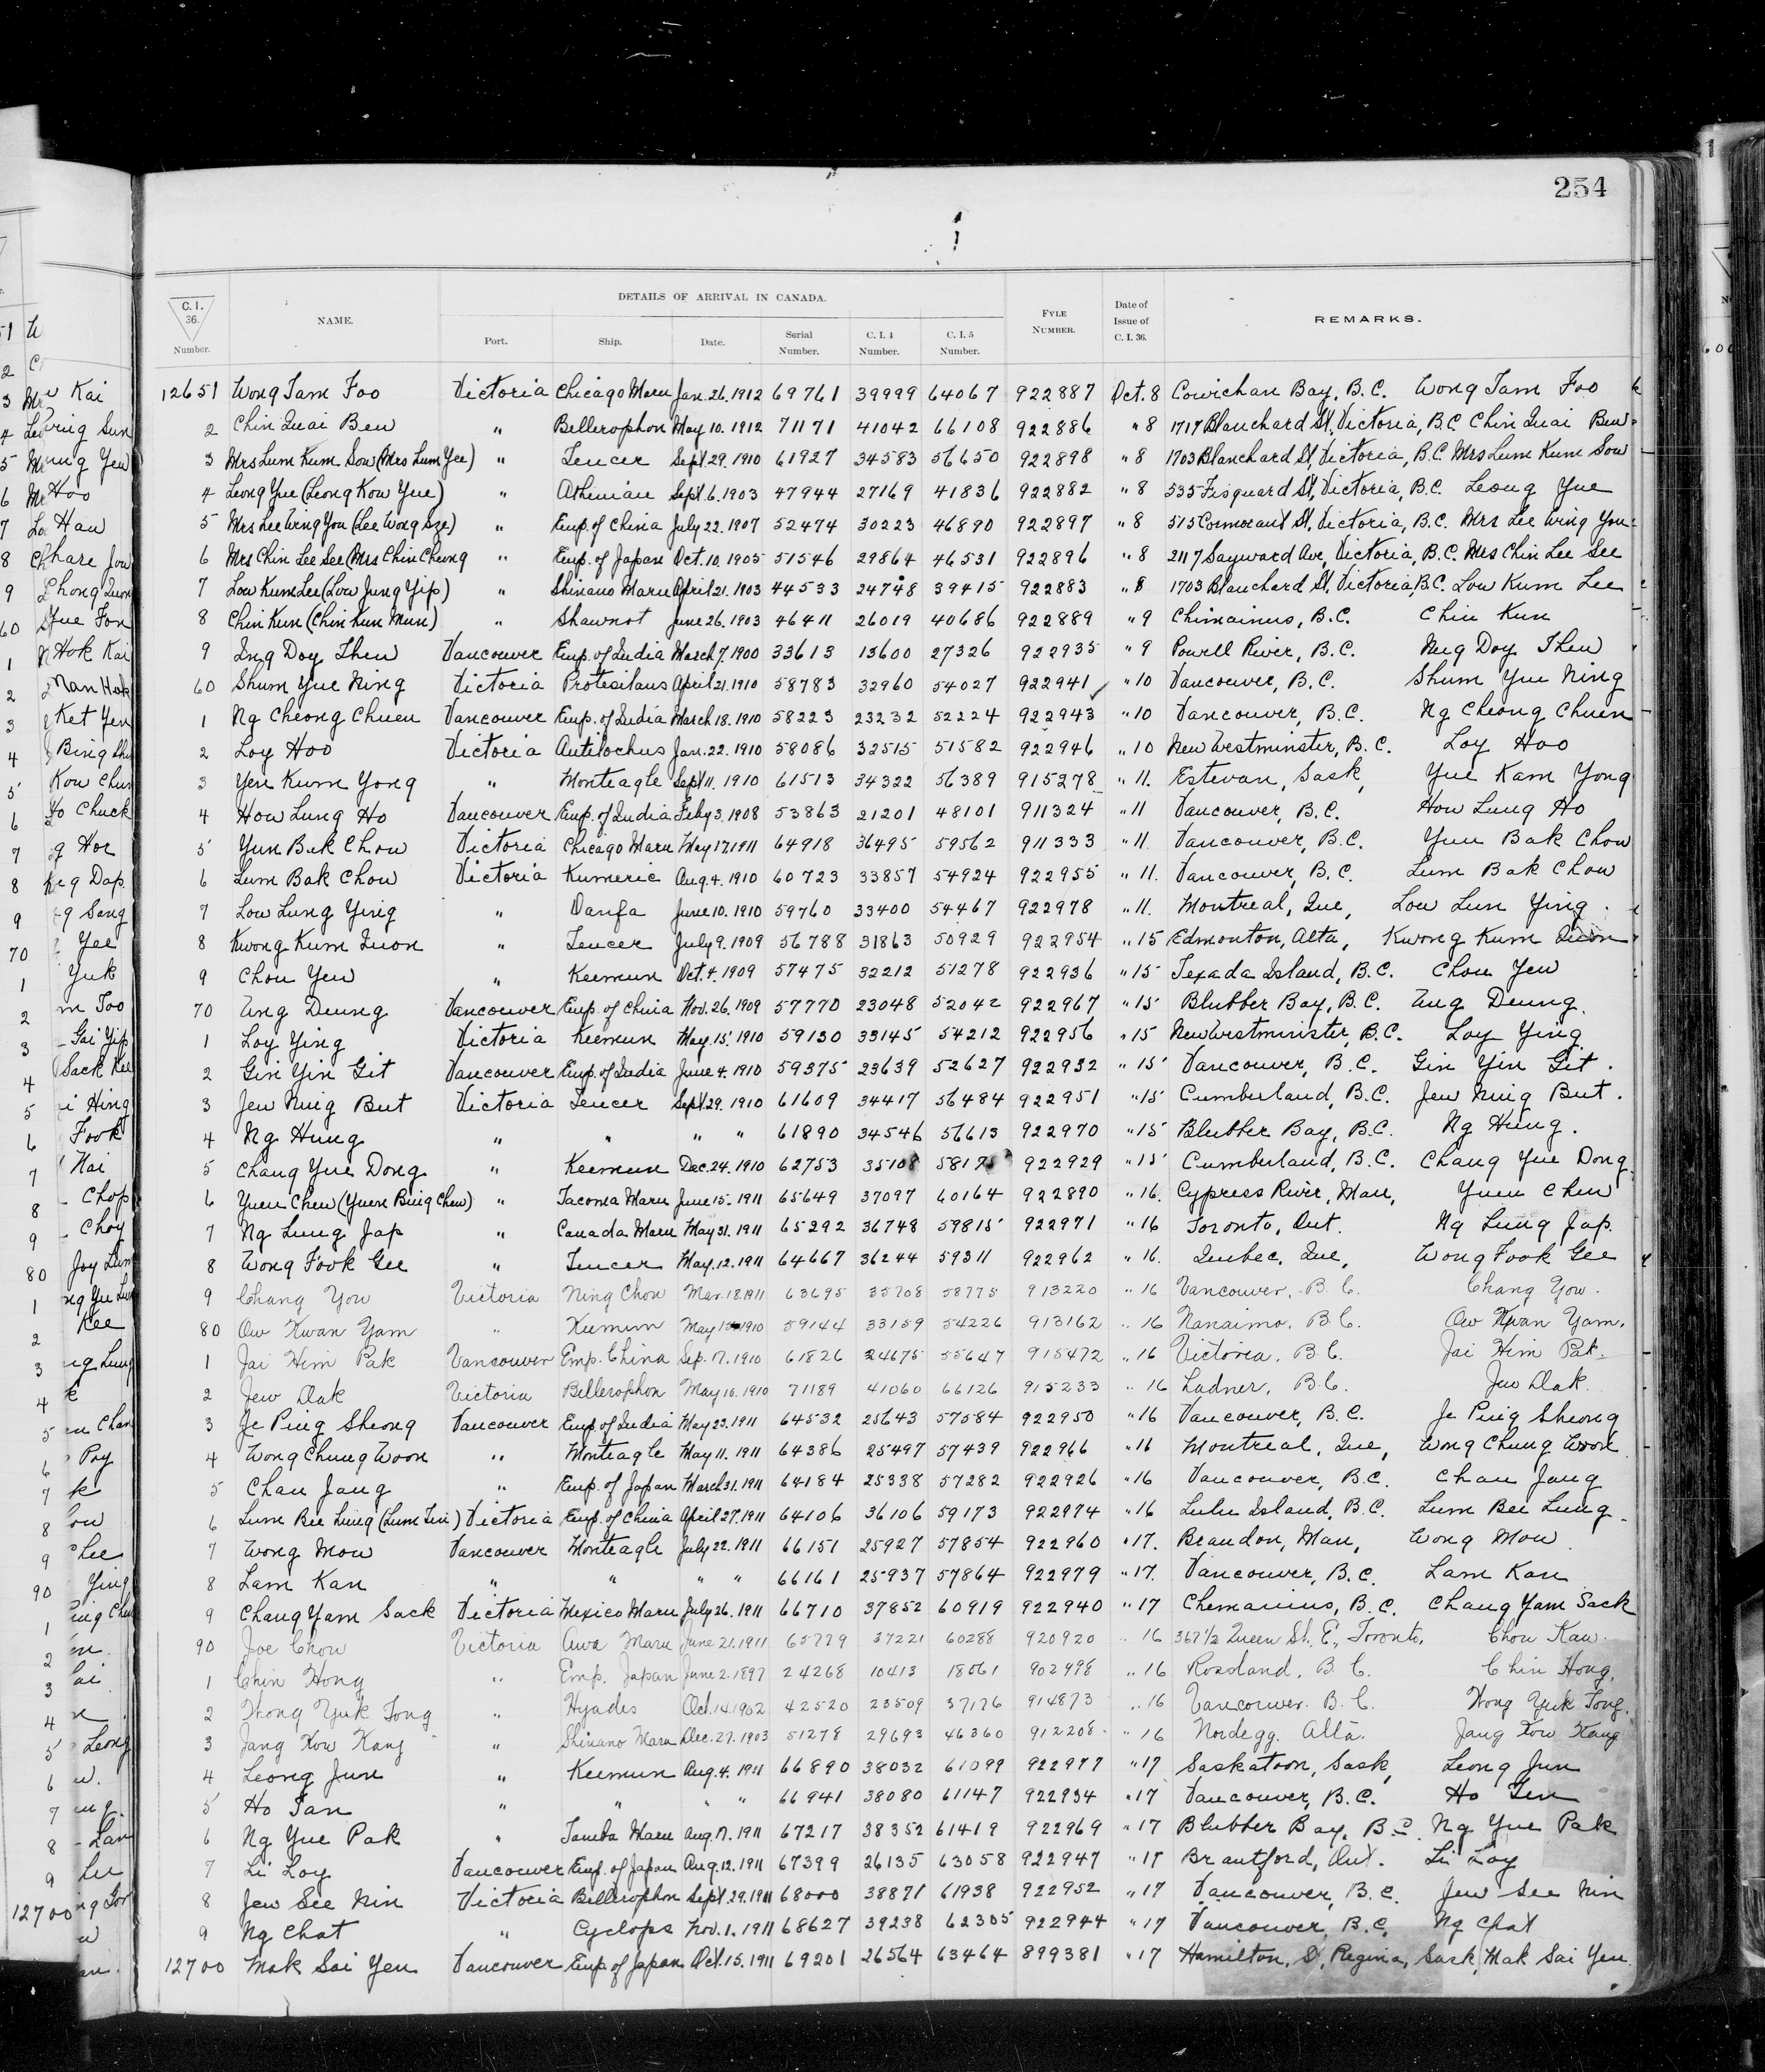 254
DETAILS OF ARRIVAL IN CANADA.
C. I. 36. Number. NAME. Port. Ship. Date. Serial Number. C. I. 4 Number. C. I. 5 Number. FYLE NUMBER. Date of Issue of C. I. 36. REMARKS.
12651 Wong Tam Foo Victoria Chicago Maru Jan. 26. 1912 69761 39999 64067 922887 Oct. 8 Cowichan Bay, B.C. Wong Tam Foo
2 Chin Quai Bew " Bellerophon May 10. 1912 71171 41042 66108 922886 " 8 1717 Blanchard St, Victoria, B.C Chin Quai Bew
3 Mrs Lum Kum Sow (Mrs Lum Yee) " Teucer Sept. 29. 1910 61927 34583 56650 922898 " 8 1703 Blanchard St, Victoria, B.C. Mrs Lum Kum Sow
4 Leong Yue (Leong Kow Yue) " Athenian Sept. 6. 1903 47944 27169 41836 922882 " 8 535 Fisguard St, Victoria, B.C. Leong Yue
5 Mrs Lee Wing You (Lee Wong Sze) " Emp. of China July 22. 1907 52474 30223 46890 922897 " 8 575 Cormorant St, Victoria, B.C. Mrs Lee Wing You
6 Mrs Chin Lee See (Mrs Chin Cheong " Emp. of Japan Oct. 10. 1905 51546 29864 46531 922896 " 8 2117 Sayward Ave, Victoria, B.C. Mrs Chin Lee See
7 Low Kum Lee (Low Jung Yip) " Shinano Maru April 21. 1903 44533 24748 39415 922883 " 8 1703 Blanchard St, Victoria, B.C. Low Kum Lee
8 Chin Kun (Chin Kun Mun) " Shawnot June 26. 1903 46411 26019 40686 922889 " 9 Chimainus, B.C. Chin Kun
9 Ing Doy Thew Vancouver Emp. of India March 7. 1900 33613 13600 27326 922935 " 9 Powell River, B.C. Nug Doy Thew
60 Shum Yue Ning Victoria Protesilaus April 21. 1910 58783 32960 54027 922941 " 10 Vancouver, B.C. Shum Yue Ning
1 Ng Cheong Chuen Vancouver Emp. of India March 18. 1910 58223 23232 52224 922943 " 10 Vancouver, B.C. Ng Cheong Chuen
2 Loy Hoo Victoria Antilochus Jan. 22. 1910 58086 32515 51582 922946 " 10 New Westminster, B.C. Loy Hoo
3 Yen Kum Yong " Monteagle Sept 11. 1910 61513 34322 56389 915278 " 11. Estevan, Sask, Yue Kam Yong
4 How Lung Ho Vancouver Emp. of India Feby 3. 1908 53863 21201 48101 911324 " 11 Vancouver, B.C. How Lung Ho
5 Yun Bak Chow Victoria Chicago Maru May 17. 1911 64918 36495 59562 911333 " 11. Vancouver, B.C. Yun Bak Chow
6 Lum Bak Chow Victoria Kumeric Aug. 4. 1910 60723 33857 54924 922955 " 11. Vancouver, B.C. Lum Bak Chow
7 Low Lung Ying " Oanfa June 10. 1910 59760 33400 54467 922978 " 11. Montreal, Que, Low Lun Ying
8 Kwong Kum Quon " Teucer July 9. 1909 56788 31863 50929 922954 " 15 Edmonton, Alta, Kwong Kum Quon
9 Chou Yew " Keemun Oct. 4. 1909 57475 32212 51278 922936 " 15 Texada Island, B.C. Chou Yew
70 Ung Deung Vancouver Emp. of China Nov. 26. 1909 57770 23048 52042 922967 " 15 Blubber Bay, B.C. Ung Deung.
1 Loy Ying Victoria Keemun May. 15. 1910 59130 33145 54212 922956 " 15 New Westminster, B.C. Loy Ying
2 Gin Yin Git Vancouver Emp. of India June 4. 1910 59375 23639 52627 922932 " 15 Vancouver, B.C. Gin Yin Git.
3 Jew Ning But Victoria Teucer Sept. 29. 1910 61609 34417 56484 922951 " 15 Cumberland, B.C. Jew Ning But.
4 Ng Hung " " " " 61890 34546 56613 922970 " 15 Blubber Bay, B.C. Ng Hung.
5 Chang Yue Dong " Keemun Dec. 24. 1910 62753 35108 922929 " 15 Cumberland, B.C. Chang Yue Dong
6 Yuen Chew (Yuen Bing Chew) " Tacoma Maru June 15. 1911 65649 37097 60164 922890 " 16. Cypress River, Man, Yuen Chew
7 Ng Lung Jap " Canada Maru May 31. 1911 65292 36748 59815 922971 " 16 Toronto, Ont. Ng Lung Jap.
8 Wong Fook Gee " Teucer May. 12. 1911 64667 36244 59311 922962 " 16. Quebec, Que, Wong Fook Gee
9 Chang Yow Victoria Ning Chow Mar. 18. 1911 63695 35708 58775 913220 " 16 Vancouver, B.C. Chang Yow.
80 Ow Kwan Yam " Keemun May 15 1910 59144 33159 54226 913162 " 16 Nanaimo, B.C. Ow Kwan Yam.
1 Jai Him Pak Vancouver Emp. China Sep. 17. 1910 61826 24675 55647 915472 " 16 Victoria, B.C. Jai Him Pak.
2 Jew Dak Victoria Bellerophon May 10. 1910 71189 41060 66126 915233 " 16 Ladner, B.C. Jew Dak.
3 Je Ping Sheong Vancouver Emp. of India May 23. 1911 64532 25643 57584 922950 " 16 Vancouver, B.C. Je Ping Sheong
4 Wong Chung Woon " Monteagle May 11. 1911 64386 25497 57439 922966 " 16 Montreal, Que, Wong Chung Woon
5 Chan Jang " Emp. of Japan March 31. 1911 64184 25338 57282 922926 " 16 Vancouver, B.C. Chan Jang
6 Lum Bee Lung (Lum Tin) Victoria Emp. of China April 27. 1911 64106 36106 59173 922974 " 16 Lulu Island, B.C. Lum Bee Lung
7 Wong Mow Vancouver Monteagle July 22. 1911 66151 25927 57854 922960 " 17. Brandon, Man, Wong Mow
8 Lam Kan " " " " 66161 25937 57864 922979 " 17. Vancouver, B.C. Lam Kan
9 Chang Yam Sack Victoria Mexico Maru July 26. 1911 66710 37852 60919 922940 " 17 Chemainus, B.C. Chang Yam Sack
90 Joe Chow Victoria Awa Maru June 21. 1911 65779 37221 60288 920920 " 16 367 1/2 Queen St. E., Toronto, Chou Kaw.
1 Chin Hong " Emp. Japan June 2. 1897 24268 10413 18061 902998 " 16 Rossland, B.C. Chin Hong.
2 Wong Yuk Tong " Hyades Oct. 14. 1902 42520 23509 37176 914873 " 16 Vancouver. B.C. Wong Yuk Tong.
3 Jang Kow Kang " Shinano Maru Dec. 27. 1903 51278 29693 46360 912208 " 16 Nordegg. Alta. Jang Kow Kang
4 Leong Jun " Keemun Aug. 4. 1911 66890 38032 61099 922977 " 17 Saskatoon, Sask, Leong Jun
5 Ho Tan " " " " 66941 38080 61147 922934 " 17 Vancouver, B.C. Ho Ten
6 Ng Yue Pak " Tamba Maru Aug. 17. 1911 67217 38352 61419 922969 " 17 Blubber Bay, B.C. Ng Yue Pak
7 Li Loy Vancouver Emp. of Japan Aug. 12. 1911 67399 26135 63058 922947 " 17 Brantford, Ont. Li Loy
8 Jew See Nin Victoria Bellerophon Sept. 29. 1911 68000 38871 61938 922952 " 17 Vancouver, B.C. Jew See Nin
9 Ng Chat " Cyclops Nov. 1. 1911 68627 39238 62305 922944 " 17 Vancouver, B.C. Ng Chat
12700 Mak Sai Yen Vancouver Emp. of Japan Oct. 15. 1911 69201 26564 63464 899381 " 17 Hamilton, St, Regina, Sask, Mak Sai Yen.